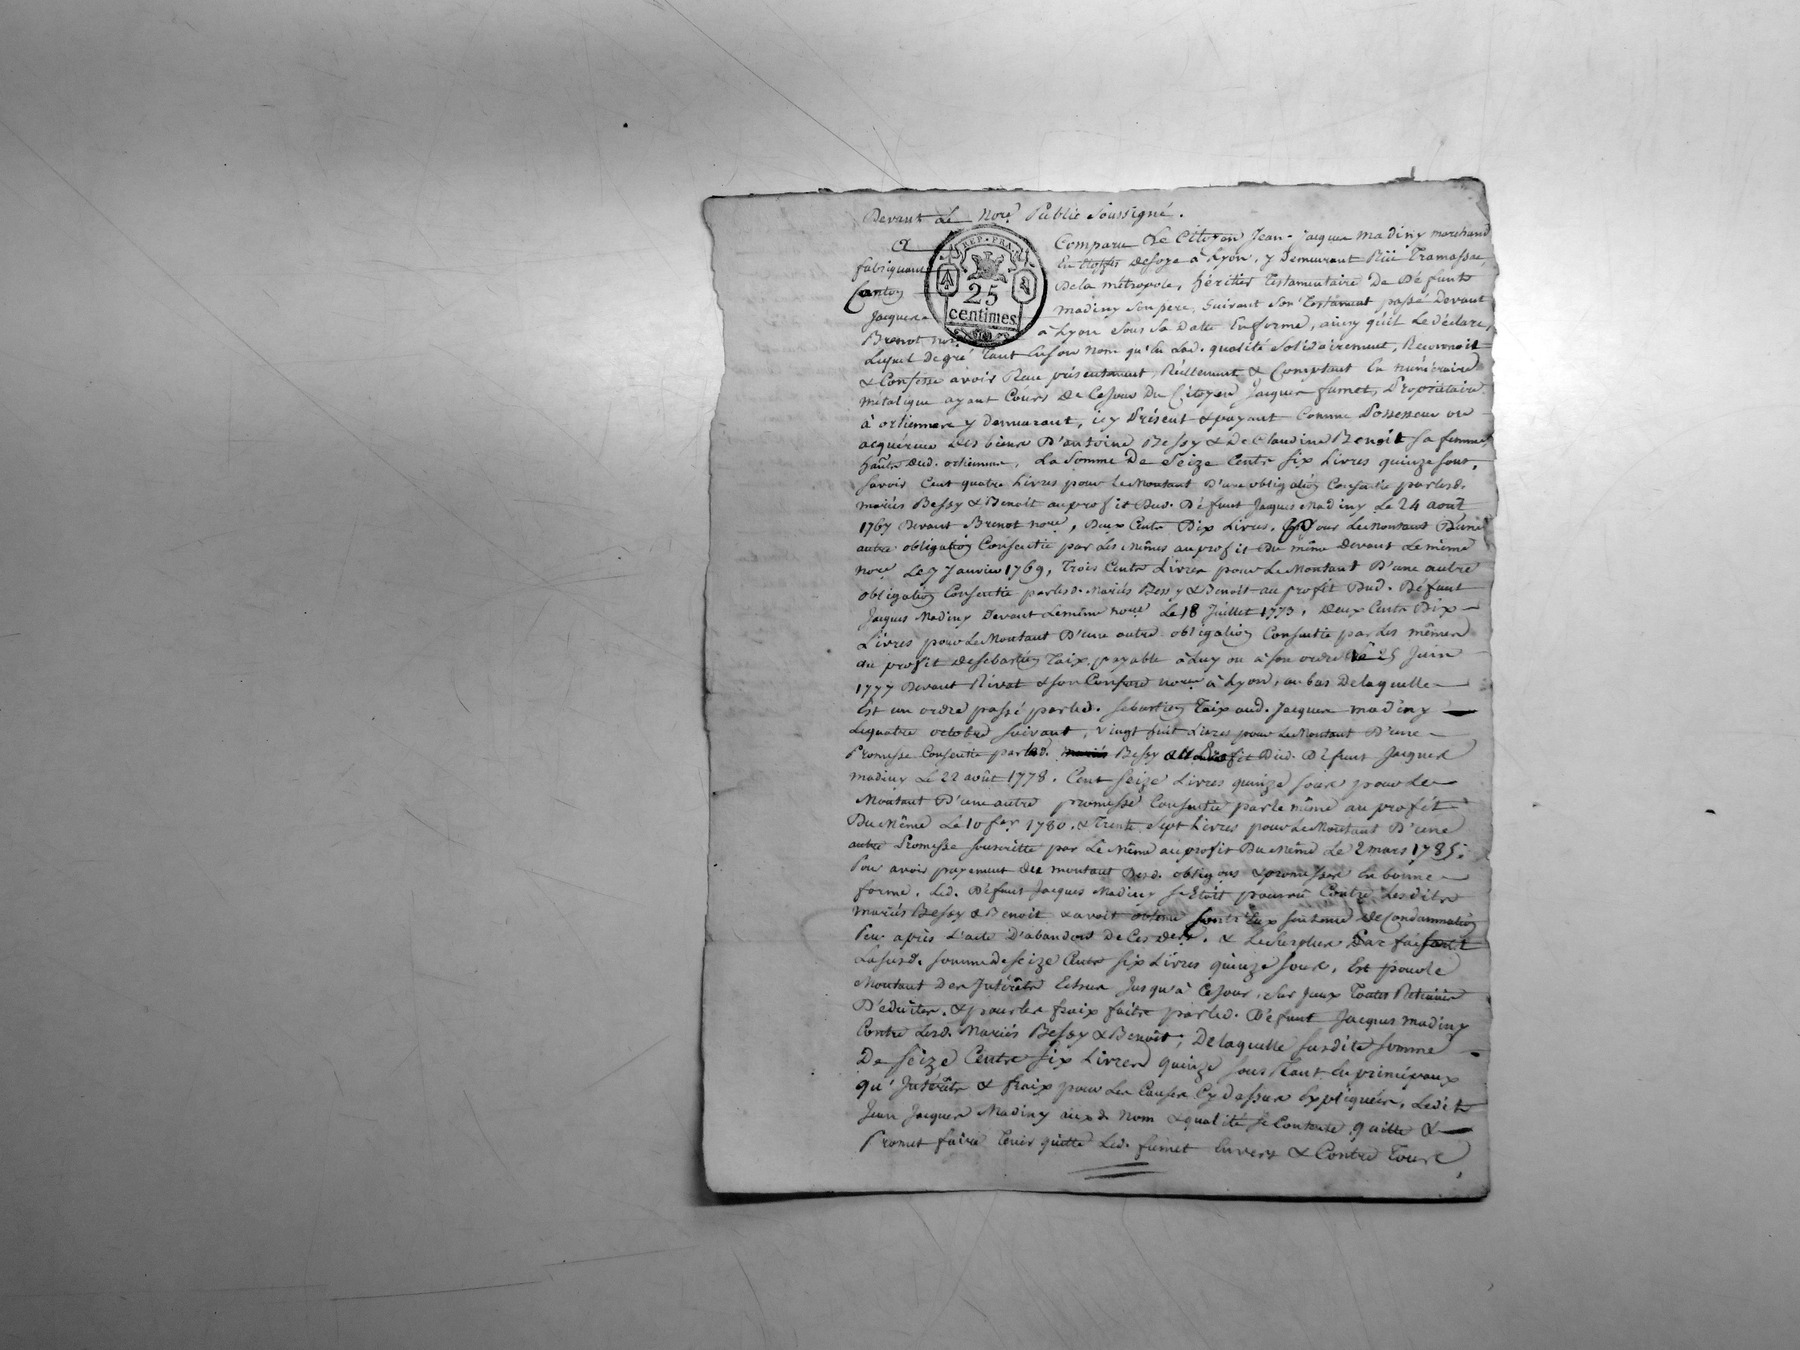 Devant le Nore. Public Soussigné.
REP. FRA.
25
centimes
Comparu Le Citoyen Jean-jacques madiny marchand
& fabriquant En Etoffes desoye à Lyon, y Demeurant Rüe Tramassac,
Canton Dela métropole, héritier Testamentaire De Défunt
Jacques madiny son pere, Suivant Son Testament passé Devant
Brenot nore. à Lyon sous Sa Datte En forme, ainsy quil Le déclare,
Lequel de gré tant En son nom qu'En Lad. qualité Solidairement, Reconnoit
& Confesse avoir Reçu présentement, Réellement & Comptant En numéraire
métalique ayant Cours De Cejour Du Citoyen Jacques fumet, Propriétaire
à orlienas y Demeurant, icy Présent & payant Comme Possesseur ou
acquéreur Des biens D'antoine Bessy & De Claudine Benoit sa femme
dud. orlienas, La Somme De Seize Cents Six Livres quinze sous,
savoir Cent quatre Livres pour Le Montant D'une obligation Consentie parlesd.
mariés Bessy & Benoit au profit Dud. Défunt Jacques Madiny Le 24 août
1767 Devant Brenot nore, Deux Cents Dix Livres, Pour Le Montant D'une
autre obligation Consentie par Les mêmes au profit Du même Devant Le même
nore Le 7 Janvier 1769, Trois Cents Livres pour Le Montant D'une autre
obligation Consentie parlesd. Mariés Bessy & Benoit au profit Dud. Défunt
Jacques Madiny Devant Lemême nore Le 18 Juillet 1773, Deux Cents Dix
Livres pour Le Montant D'une autre obligation Consentie par Les mêmes
au profit De sebastien Taix payable à Luy ou à son ordre Le 25 Juin
1777 Devant Rivat & son Confrere nore à Lyon, au bas Delaquelle
Est un ordre passé parled. sebastien Taix aud. Jacques madiny
Lequatre octobre suivant, vingt huit Livres pour Le Montant D'une
Promesse Consentie par led. Bessy au Profit Dud. Défunt Jacques
madiny Le 22 août 1778. Cent seize Livres quinze sous pour Le
Montant D'une autre promesse Consentie par le même au profit
Du Même Le 10 fer. 1780. & Trente Sept Livres pour Le Montant D'une
autre Promesse souscritte par Le Même au profit Du Même Le 2 mars 1785.
Pour avoir payement des montant Desd. obligons & promesses En bonne
forme. Led. Défunt Jacques Madiny s'Etoit pourvû Contre Lesdits
mariés Bessy & Benoit & avoit obtenu Contr'Eux sentence de Condamnation
Peu après L'acte D'abandon de Ces & Le surplus Par faisant
La susd. somme de seize Cents six Livres quinze sous, Est pour le
Montant Des Intérêts Echus Jusqu'à Cejour, sur Iceux Toutes Retenües
Déduites, & pour les fraix faits par led. Défunt Jacques madiny
Contre Lesd. Mariés Bessy & Benoit, De laquelle susdite somme
De seize Cents six Livres quinze sous Tant En principaux
qu'Intérêts & fraix pour Les Causes Cy dessus Expliquées, Ledit
Jean Jacques Madiny auxd. nom & qualité se Contente quitte &
Promet faire Tenir quitte Led. fumet Envers & Contre Tous